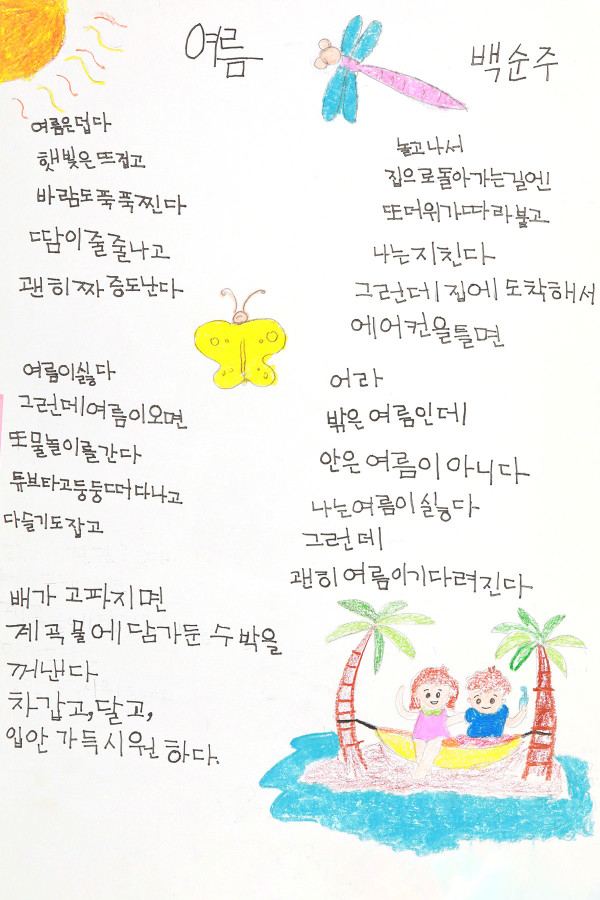 여름
백순주
여름은덥다
햇빛은뜨겁고
바람도푹푹찐다
땀이줄줄나고
괜히짜증도난다
여름이싫다
그런데여름이오면
또물놀이를간다
튜브타고둥둥떠다나고
다슬기도잡고
배가 고파지면
계곡물에담가둔 수박을
꺼낸다
차갑고,달고,
입안 가득시원하다.
놀고나서
집으로돌아가는길엔
또더위가따라붙고
나는지친다
그런데집에도착해서
에어컨을틀면
어라
밖은여름인데
안은여름이아니다
나는여름이싫다
그런데
괜히여름이기다려진다